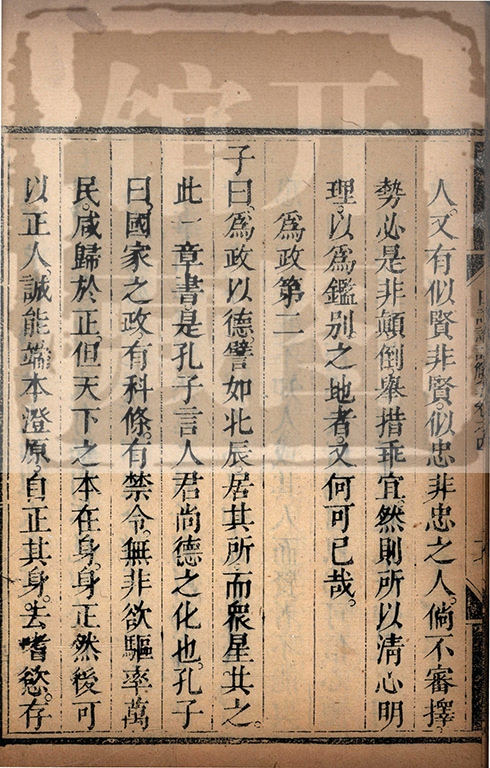 人又有似賢非賢。似忠非忠之人。倘不審擇。
勢必是非顛倒。舉措乖宜。然則所以清心明
理。以為鑑別之地者。又何可已哉。
為政第二
子曰。為政以德。譬如北辰。居其所。而衆星共之。
此一章書。是孔子言人君尚德之化也。孔子
曰。國家之政。有科條。有禁令。無非欲驅率萬
民。咸歸於正。但天下之本在身。身正然後可
以正人。誠能端本澄原。自正其身。去嗜慾。存